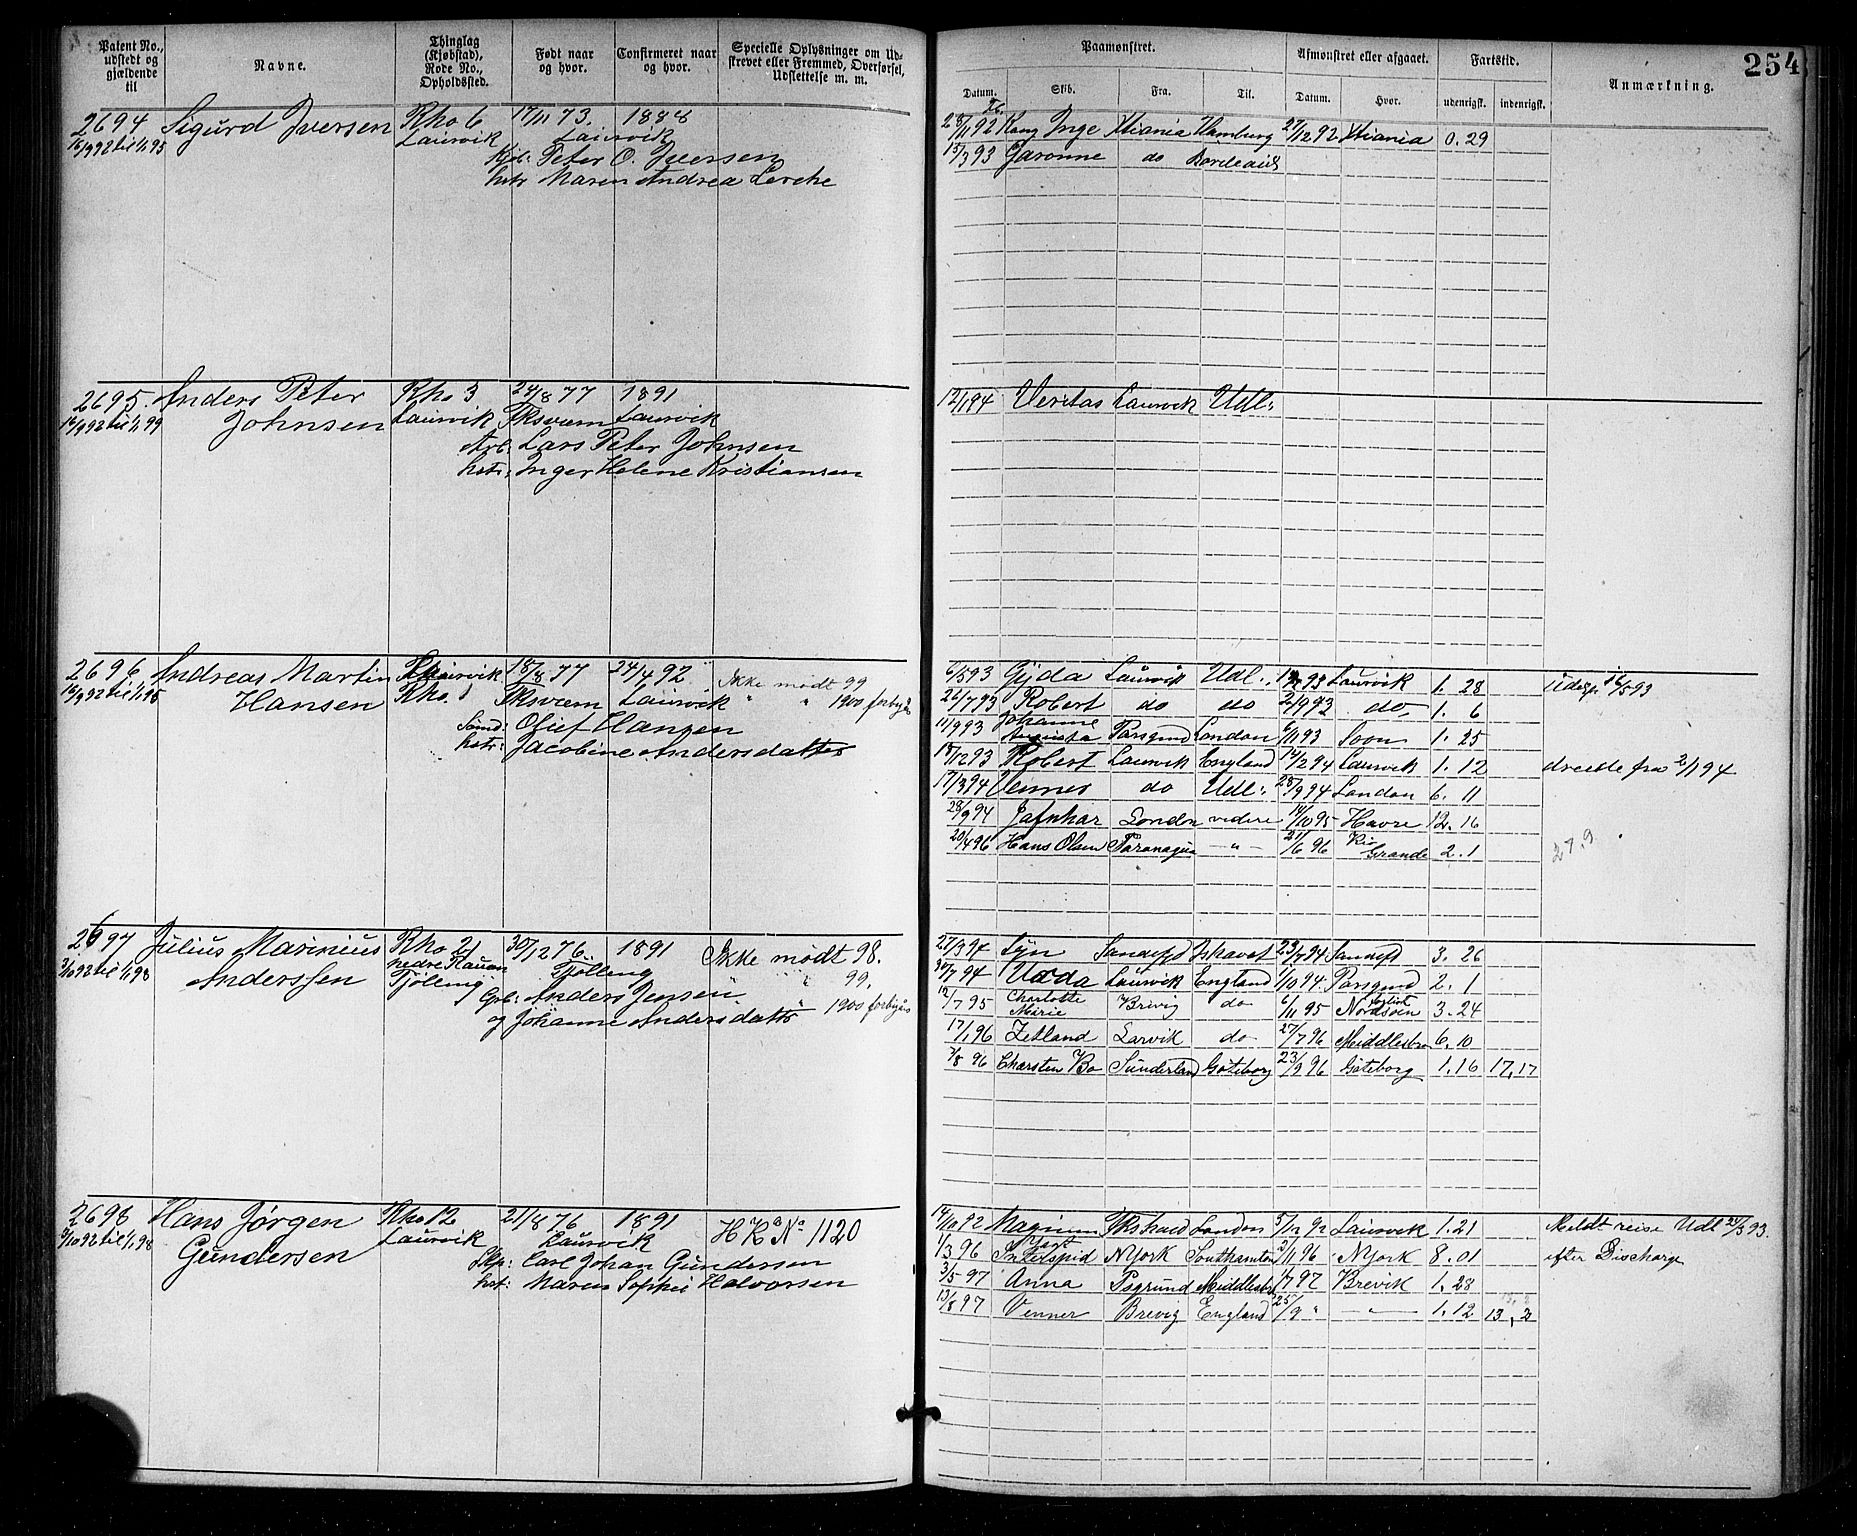 254
Patent No., udstedt og gjældende til
Navne.
Thinglag (Kjøbstad), Rode No., Opholdssted.
Født naar og hvor.
Confirmeret naar og hvor.
Specielle Oplysninger om Udskrevet eller Fremmed, Overførsel, Udslettelse m. m.
Paamønstret.
Afmønstret eller afgaaet.
Fartstid.
Anmærkning.
Datum. Skib. Fra. Til. Datum. Hvor. udenrigsk. indenrigsk.
2694 Sigurd Iversen Rho 6 17/11 73. 1888
16/9 92 til 1/1 95 Laurvik Laurvik
Peter O. Iversen
hstr Maren Andrea Lerche
28/11 92 Kong Inge Xtiania Hamburg 27/12 92 Xtiania 0. 29
15/3 93 Garonne do Bordeaux
2695. Anders Peter Rho 3 24/8 77 1891
16/9 92 til 1/1 99 Johnsen Laurvik Laurvik
Arb: Lars Peter Johnsen
hstr: Inger Helene Kristiansen
12/1 94 Veritas Laurvik Udl:
2696 Andreas Martin Laurvik 18/8 77 24/4 92 Ikke mødt 99
16/9 92 til 1/1 95 Hansen Rho. 1 Laurvik " " 1900 forbigaas
Sømd: Olief Hansen
hstr: Jacobine Andersdatter
6/5 93 Gyda Laurvik Udl. 93 Laurvik 1. 28
26/7 93 Robert do do 2/9 93 do 1. 6
11/9 93 Johanne Augusta Porsgrund London 6/11 93 Soon 1. 25
18/12 93 Robert Laurvik England 14/2 94 Laurvik 1. 12 dreelte fra 2/1 94
17/3 94 Venner do Udl: 28/9 94 London 6. 11
28/9 94 Jafnhar London videre 14/10 95 Havre 12. 16
20/4 96 Hans Olsen Paranagua — " — 21/6 96 Rio Grande 2. 1
27.9
2697 Julius Marinius Rho 21 30/12 76. 1891 Ikke mødt 98.
3/10 92 til 1/1 98 Anderssen nedre Rauan Tjølling " " 99,
Tjølling Grb: Anders Jensen " 1900 forbigaas
og Johanne Andersdattr
27/3 94 Syn Sandefjd Ishavet 23/7 94 Sandefjd 3. 26
30/7 94 Uæda Laurvik England 1/10 94. Porsgrund 2. 1
12/7 95 Charlotte Marie Brevig do 6/11 95 Nordsøen 3. 24
17/1 96 Zetland Larvik do 27/7 96 Middlesbro 6. 10
7/8 96 Charsten Bo Sunderland Gøteborg 23/9 96 Gøteborg 1. 16 17, 17
2698 Hans Jørgen Rho 12 21/8 76 1891 H K a No 1120
5/10 92 til 1/1 98 Gundersen Laurvik Laurvik
Skp: Carl Johan Gundersen
hst: Maren Sophie Halvorsen
14/10 92 London 5/12 92 Laurvik 1. 21 Meldt reise Udl 23/3 93.
1/3 96 NYork Southamton 2/11 96 NYork 8. 01 efter Discharge
3/5 97 Anna Psgrund Middlesbro 1/7 97 Brevik 1. 28
13/8 97 Venner Brevig England 25/9 " — " — 1. 12 13, 2